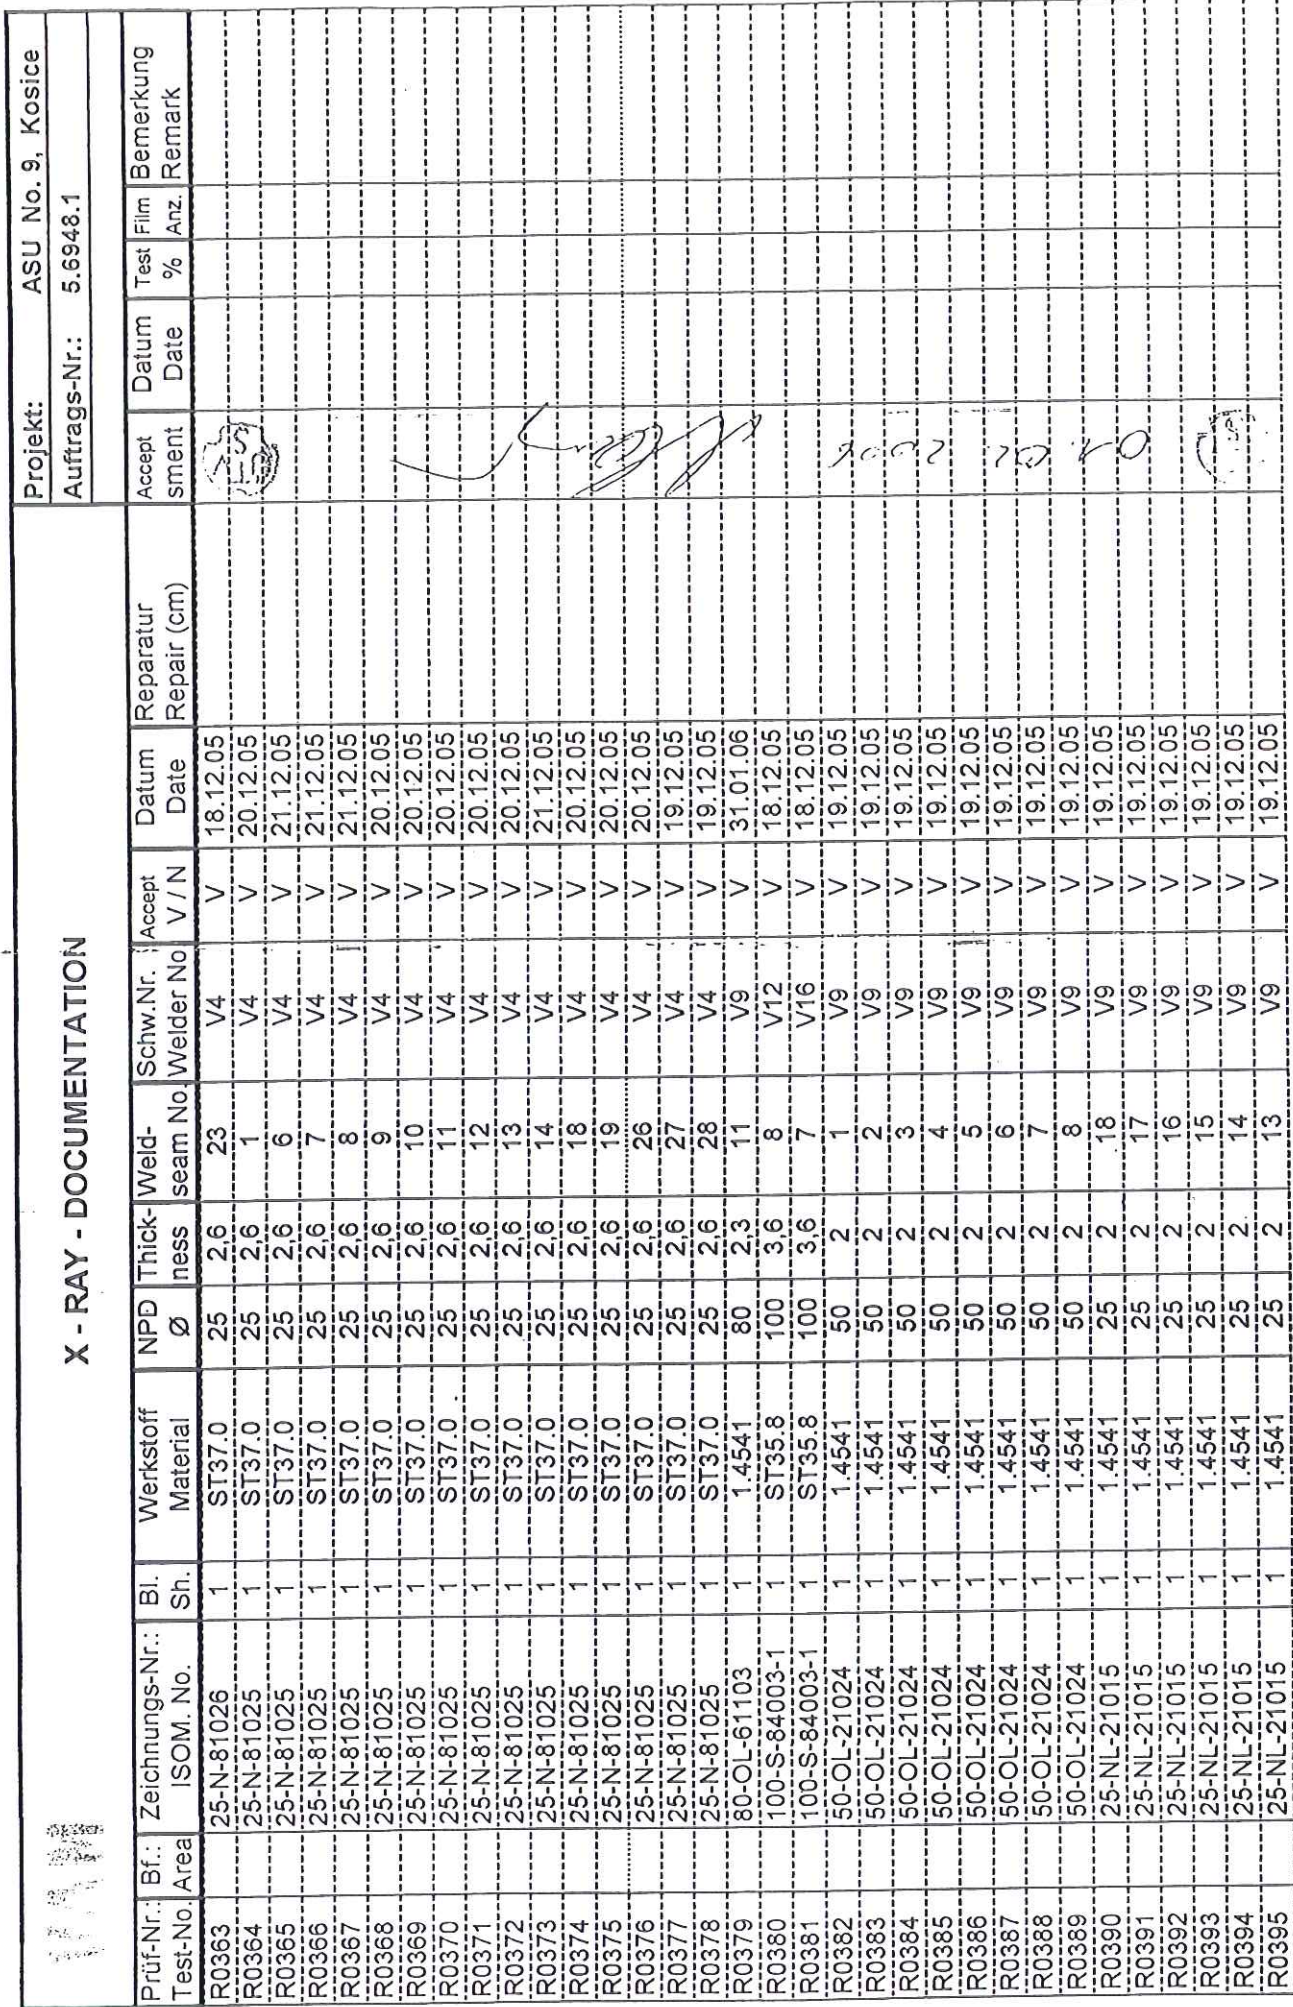 X - RAY - DOCUMENTATION
Projekt: ASU No. 9, Kosice
Auftrags-Nr.: 5.6948.1
Prüf-Nr.: Bf.: Zeichnungs-Nr.: Bl. Werkstoff NPD Thick- Weld- Schw.Nr. Accept Datum Reparatur Accept Datum Test Film Bemerkung
Test-No. Area ISOM. No. Sh. Material Ø ness seam No. Welder No V / N Date Repair (cm) sment Date % Anz. Remark
R0363 25-N-81026 1 ST37.0 25 2,6 23 V4 V 18.12.05
R0364 25-N-81025 1 ST37.0 25 2,6 1 V4 V 20.12.05
R0365 25-N-81025 1 ST37.0 25 2,6 6 V4 V 21.12.05
R0366 25-N-81025 1 ST37.0 25 2,6 7 V4 V 21.12.05
R0367 25-N-81025 1 ST37.0 25 2,6 8 V4 V 21.12.05
R0368 25-N-81025 1 ST37.0 25 2,6 9 V4 V 20.12.05
R0369 25-N-81025 1 ST37.0 25 2,6 10 V4 V 20.12.05
R0370 25-N-81025 1 ST37.0 25 2,6 11 V4 V 20.12.05
R0371 25-N-81025 1 ST37.0 25 2,6 12 V4 V 20.12.05
R0372 25-N-81025 1 ST37.0 25 2,6 13 V4 V 20.12.05
R0373 25-N-81025 1 ST37.0 25 2,6 14 V4 V 21.12.05
R0374 25-N-81025 1 ST37.0 25 2,6 18 V4 V 20.12.05
R0375 25-N-81025 1 ST37.0 25 2,6 19 V4 V 20.12.05
R0376 25-N-81025 1 ST37.0 25 2,6 26 V4 V 20.12.05
R0377 25-N-81025 1 ST37.0 25 2,6 27 V4 V 19.12.05
R0378 25-N-81025 1 ST37.0 25 2,6 28 V4 V 19.12.05
R0379 80-OL-61103 1 1.4541 80 2,3 11 V9 V 31.01.06
R0380 100-S-84003-1 1 ST35.8 100 3,6 8 V12 V 18.12.05
R0381 100-S-84003-1 1 ST35.8 100 3,6 7 V16 V 18.12.05
R0382 50-OL-21024 1 1.4541 50 2 1 V9 V 19.12.05
R0383 50-OL-21024 1 1.4541 50 2 2 V9 V 19.12.05
R0384 50-OL-21024 1 1.4541 50 2 3 V9 V 19.12.05
R0385 50-OL-21024 1 1.4541 50 2 4 V9 V 19.12.05
R0386 50-OL-21024 1 1.4541 50 2 5 V9 V 19.12.05
R0387 50-OL-21024 1 1.4541 50 2 6 V9 V 19.12.05
R0388 50-OL-21024 1 1.4541 50 2 7 V9 V 19.12.05
R0389 50-OL-21024 1 1.4541 50 2 8 V9 V 19.12.05
R0390 25-NL-21015 1 1.4541 25 2 18 V9 V 19.12.05
R0391 25-NL-21015 1 1.4541 25 2 17 V9 V 19.12.05
R0392 25-NL-21015 1 1.4541 25 2 16 V9 V 19.12.05
R0393 25-NL-21015 1 1.4541 25 2 15 V9 V 19.12.05
R0394 25-NL-21015 1 1.4541 25 2 14 V9 V 19.12.05
R0395 25-NL-21015 1 1.4541 25 2 13 V9 V 19.12.05
01.02.2006